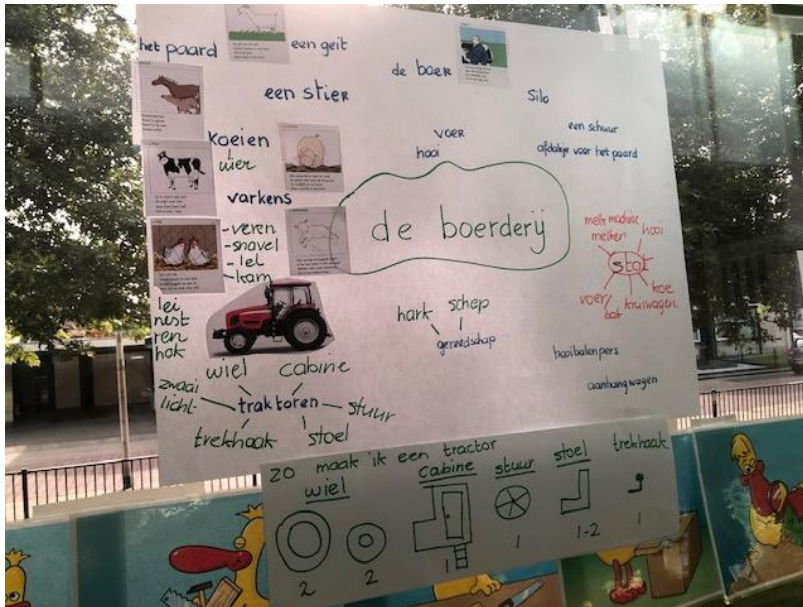 het paard
een geit
de boer
een stier
Silo
voer
hooi
een schuur
afdakje voor het paard
koeien
uier
varkens
de boerderij
-veren
-snavel
-lel
-kam
melk machine
melken
hooi
stal
koe
kruiwagen
voer/
bak
lei
nest
ren
hok
hark
schep
gereedschap
hooibalenpers
aanhangwagen
wiel
cabine
zwaai
licht-
traktoren
stuur
trekhaak
stoel
zo maak ik een tractor
wiel
cabine
stuur
stoel
trekhaak
2
2
1
1
1-2
1